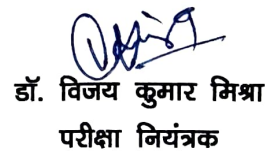 डॉ. विजय कुमार मिश्रा
परीक्षा नियंत्रक